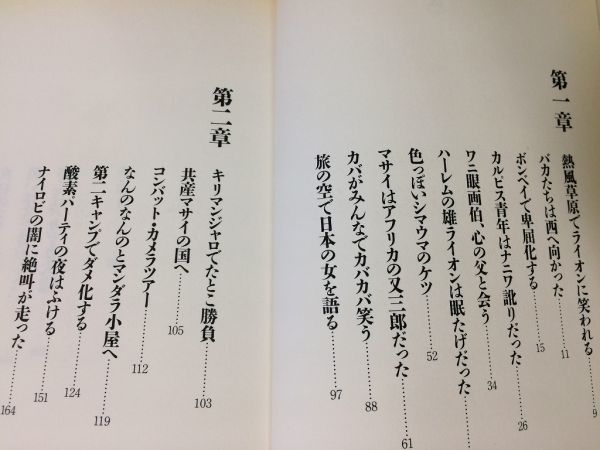 第一章
熱風草原でライオンに笑われる……9
バカたちは西へ向かった……11
ボンベイで卑屈化する……15
カルピス青年はナニワ訛りだった……26
ワニ眼画伯、心の父と会う……34
ハーレムの雄ライオンは眠たげだった……
色っぽいシマウマのケツ……52
マサイはアフリカの又三郎だった……61
カバがみんなでカバカバ笑う……88
旅の空で日本の女を語る……97
第二章
キリマンジャロでたとこ勝負……103
共産マサイの国へ……105
コンバット・カメラツアー……112
なんのなんのとマンダラ小屋へ……119
第二キャンプでダメ化する……124
酸素パーティの夜はふける……151
ナイロビの闇に絶叫が走った……164